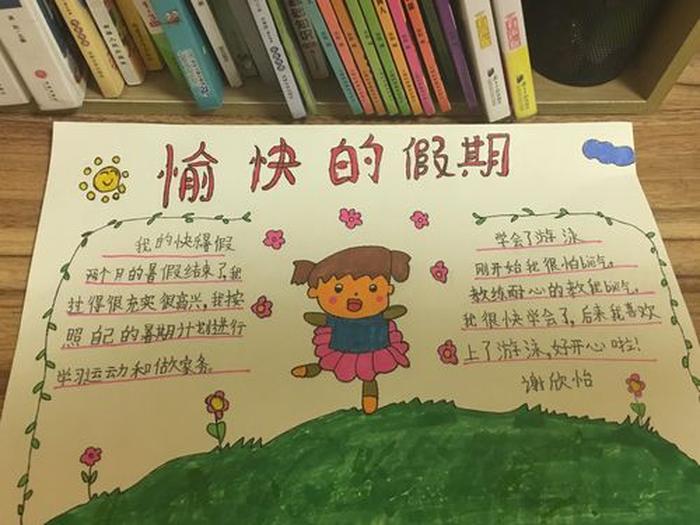 愉快的假期
我的快得假
两个月的暑假结束了,我
过得很充实很高兴,我按
照自己的暑期计划进行
学习运动和做家务。
学会了游泳
刚开始我很怕biē气。
教练耐心的教我biē气。
我很快学会了,后来我喜欢
上了游泳,好开心啦!
谢欣怡